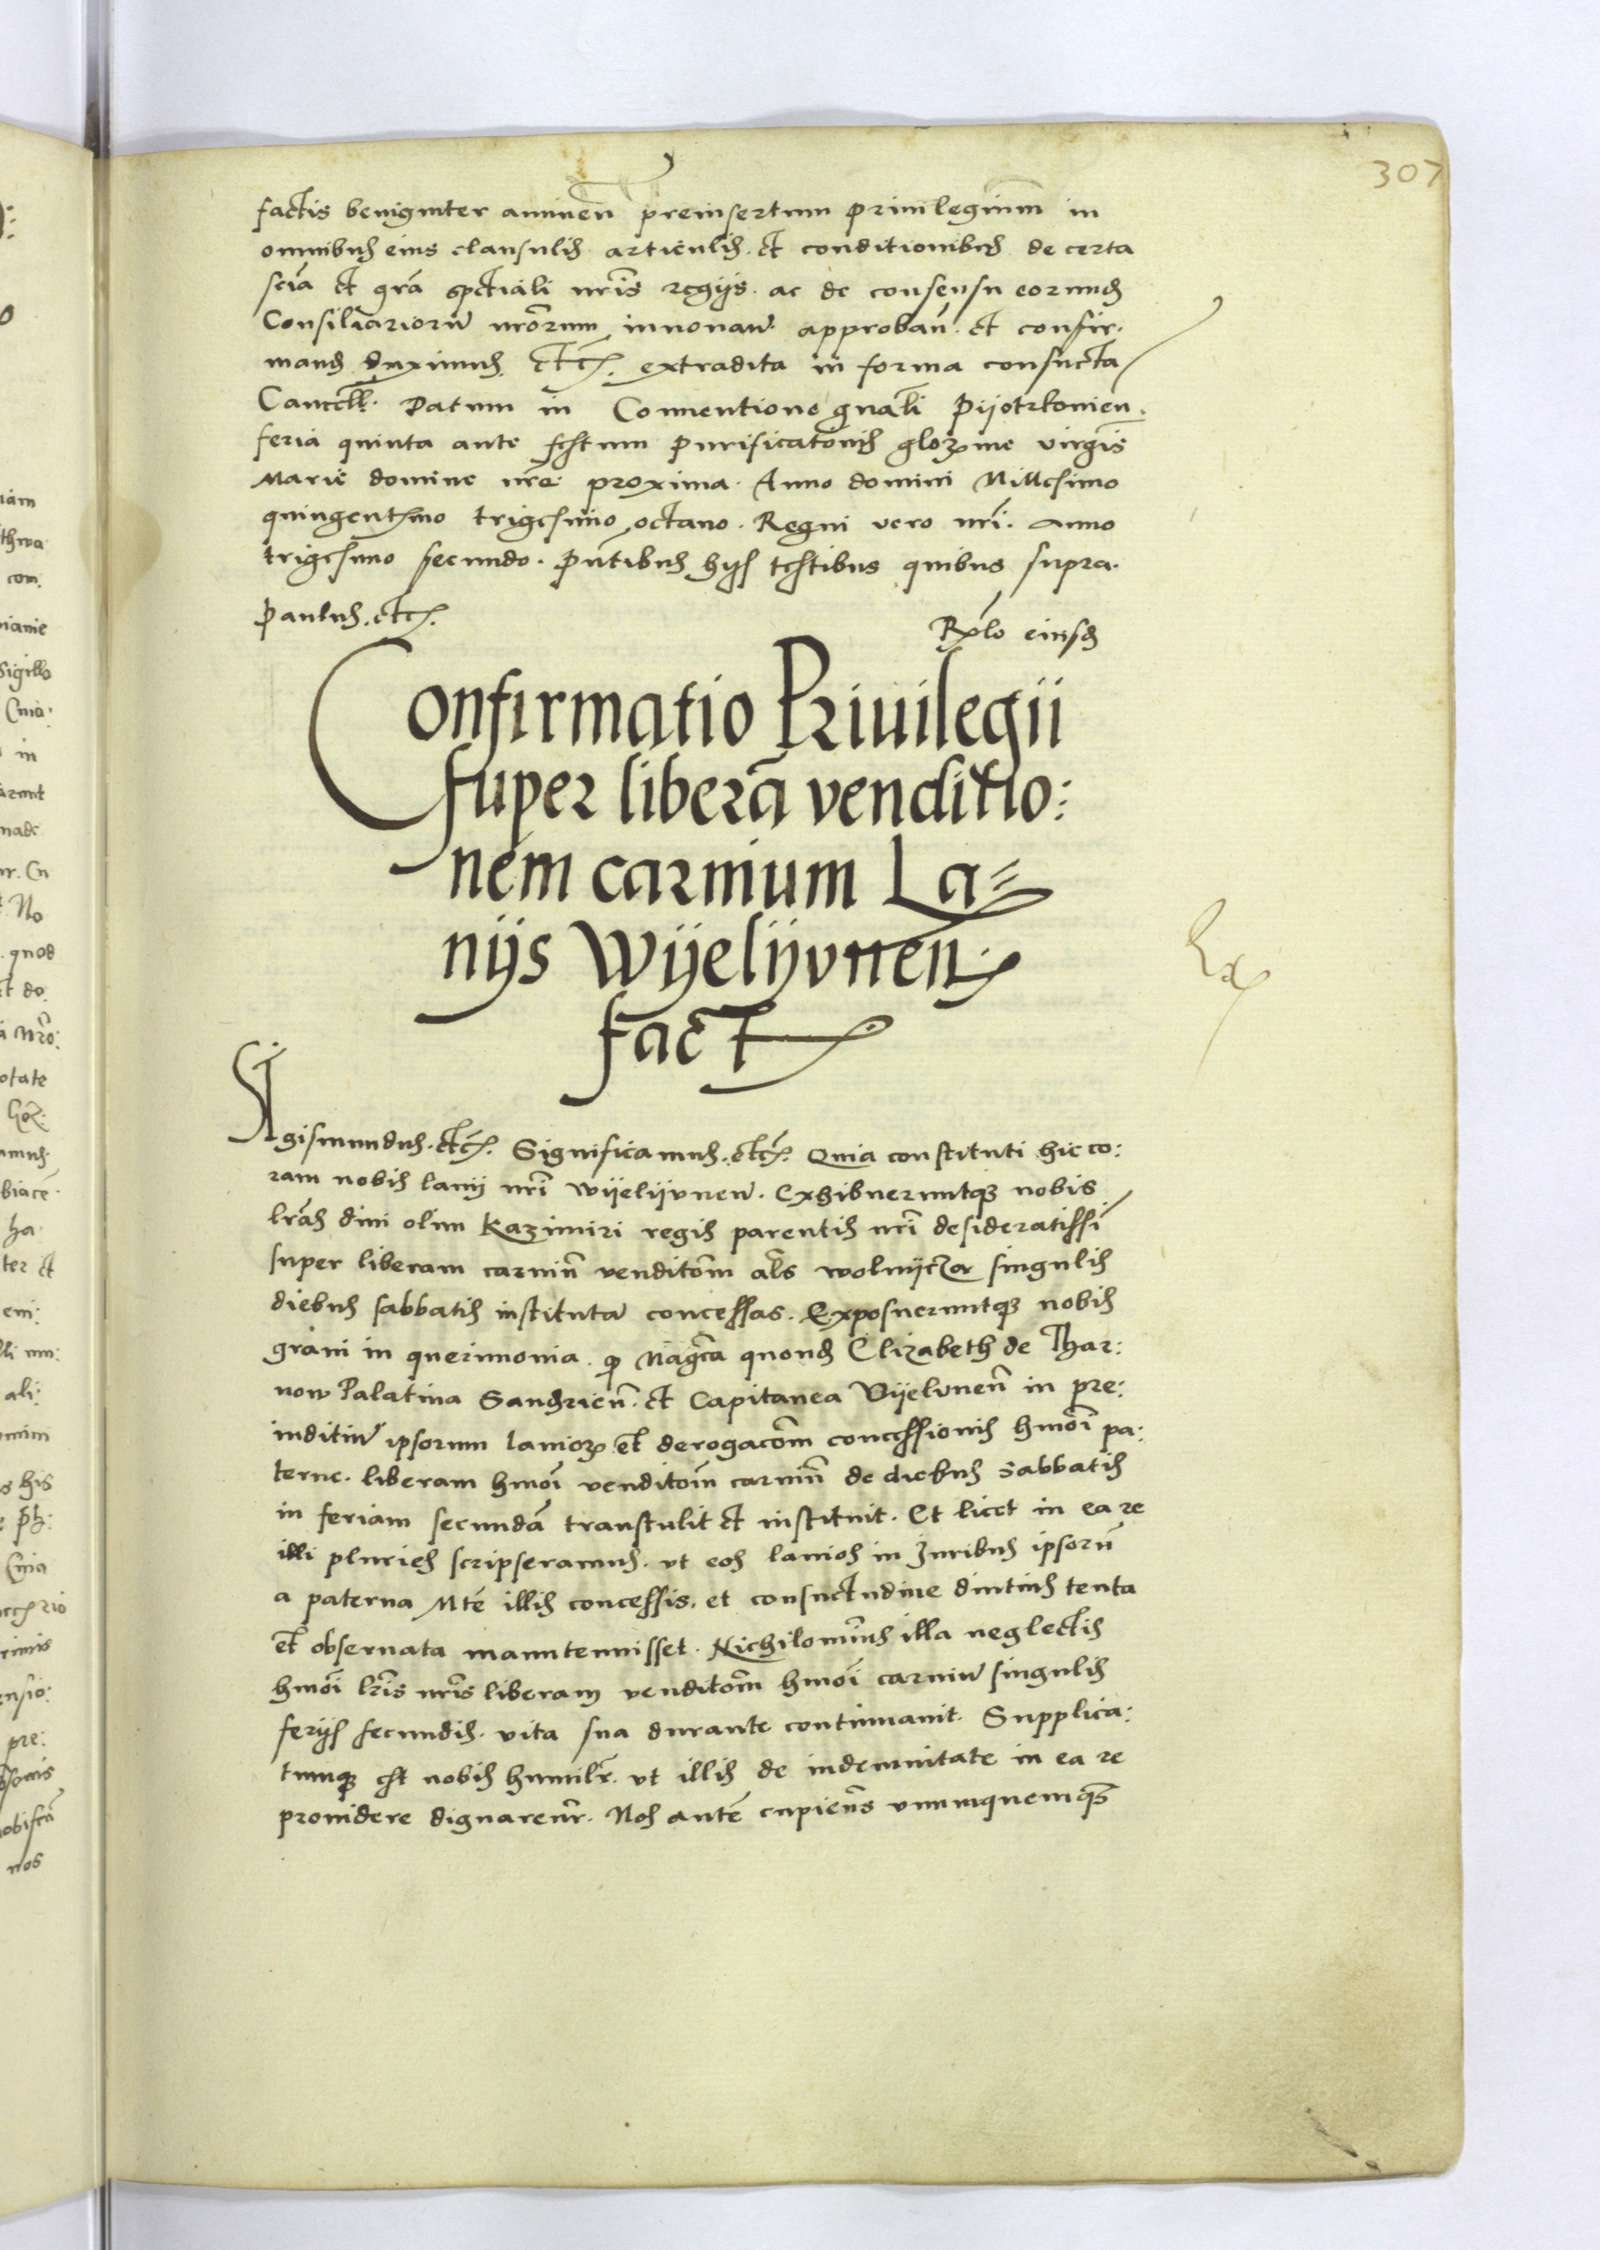 307
factis benigniter annuen preinsertum priuilegium in
omnibus eius clausulis articulis. et conditionibus de certa
scia et gra spetiali nris regijs. ac de consensu eorund
Consiliariorū nrorum innouan approban. et confir.
mand duximus. etc. extradita in forma consueta
Cancell. Datum in Conuentione gnali Pijotrkouien.
feria quinta ante festum purificatonis glorme virgis
Marie domine nre proxima. Anno domini Millesimo
quingentesimo trigesimo octauo. Regni vero nri. anno
trigesimo secundo. Pntibus hijs testibus quibus supra.
Paulus. etc. Rlo eiusd
Confirmatio Priuilegii
super liberā venditio:
nem carnium La=
nijs Wijelijunen
fact
Sigismundus. etc. Significamus. etc. Quia constituti hic co:
ram nobis lanij nri wijelijunen. Exhibueruntque nobis
lras diui olim Kazimiri regis parentis nri desideratissi
super liberam carniū venditom als wolnijcza singulis
diebus sabbatis institutā concessas. Exposueruntque nobis
graui in querimonia. q Magca quond Elizabeth de Thar:
now Palatina Sandrien. et Capitanea Vijelunen in pre:
iuditiū ipsorum lanior et derogacom concessionis hmoi pa:
terne. liberam hmoi venditom carniū de diebus sabbatis
in feriam secundā transtulit et instituit. Et licet in ea re
illi pluries scripseramus. vt eos lanios in Iuribus ipsorū
a paterna Mte illis concessis. et consuetudine diutius tenta
et obseruata manutenuisset. Nichilominus illa neglectis
hmoi lris nris liberam venditom hmoi carniū singulis
ferijs secundis. vita sua durante continuauit. Supplica:
tumque est nobis humilr. vt illis de indemnitate in ea re
prouidere dignaremr. Nos autē cupiens vnumquemque